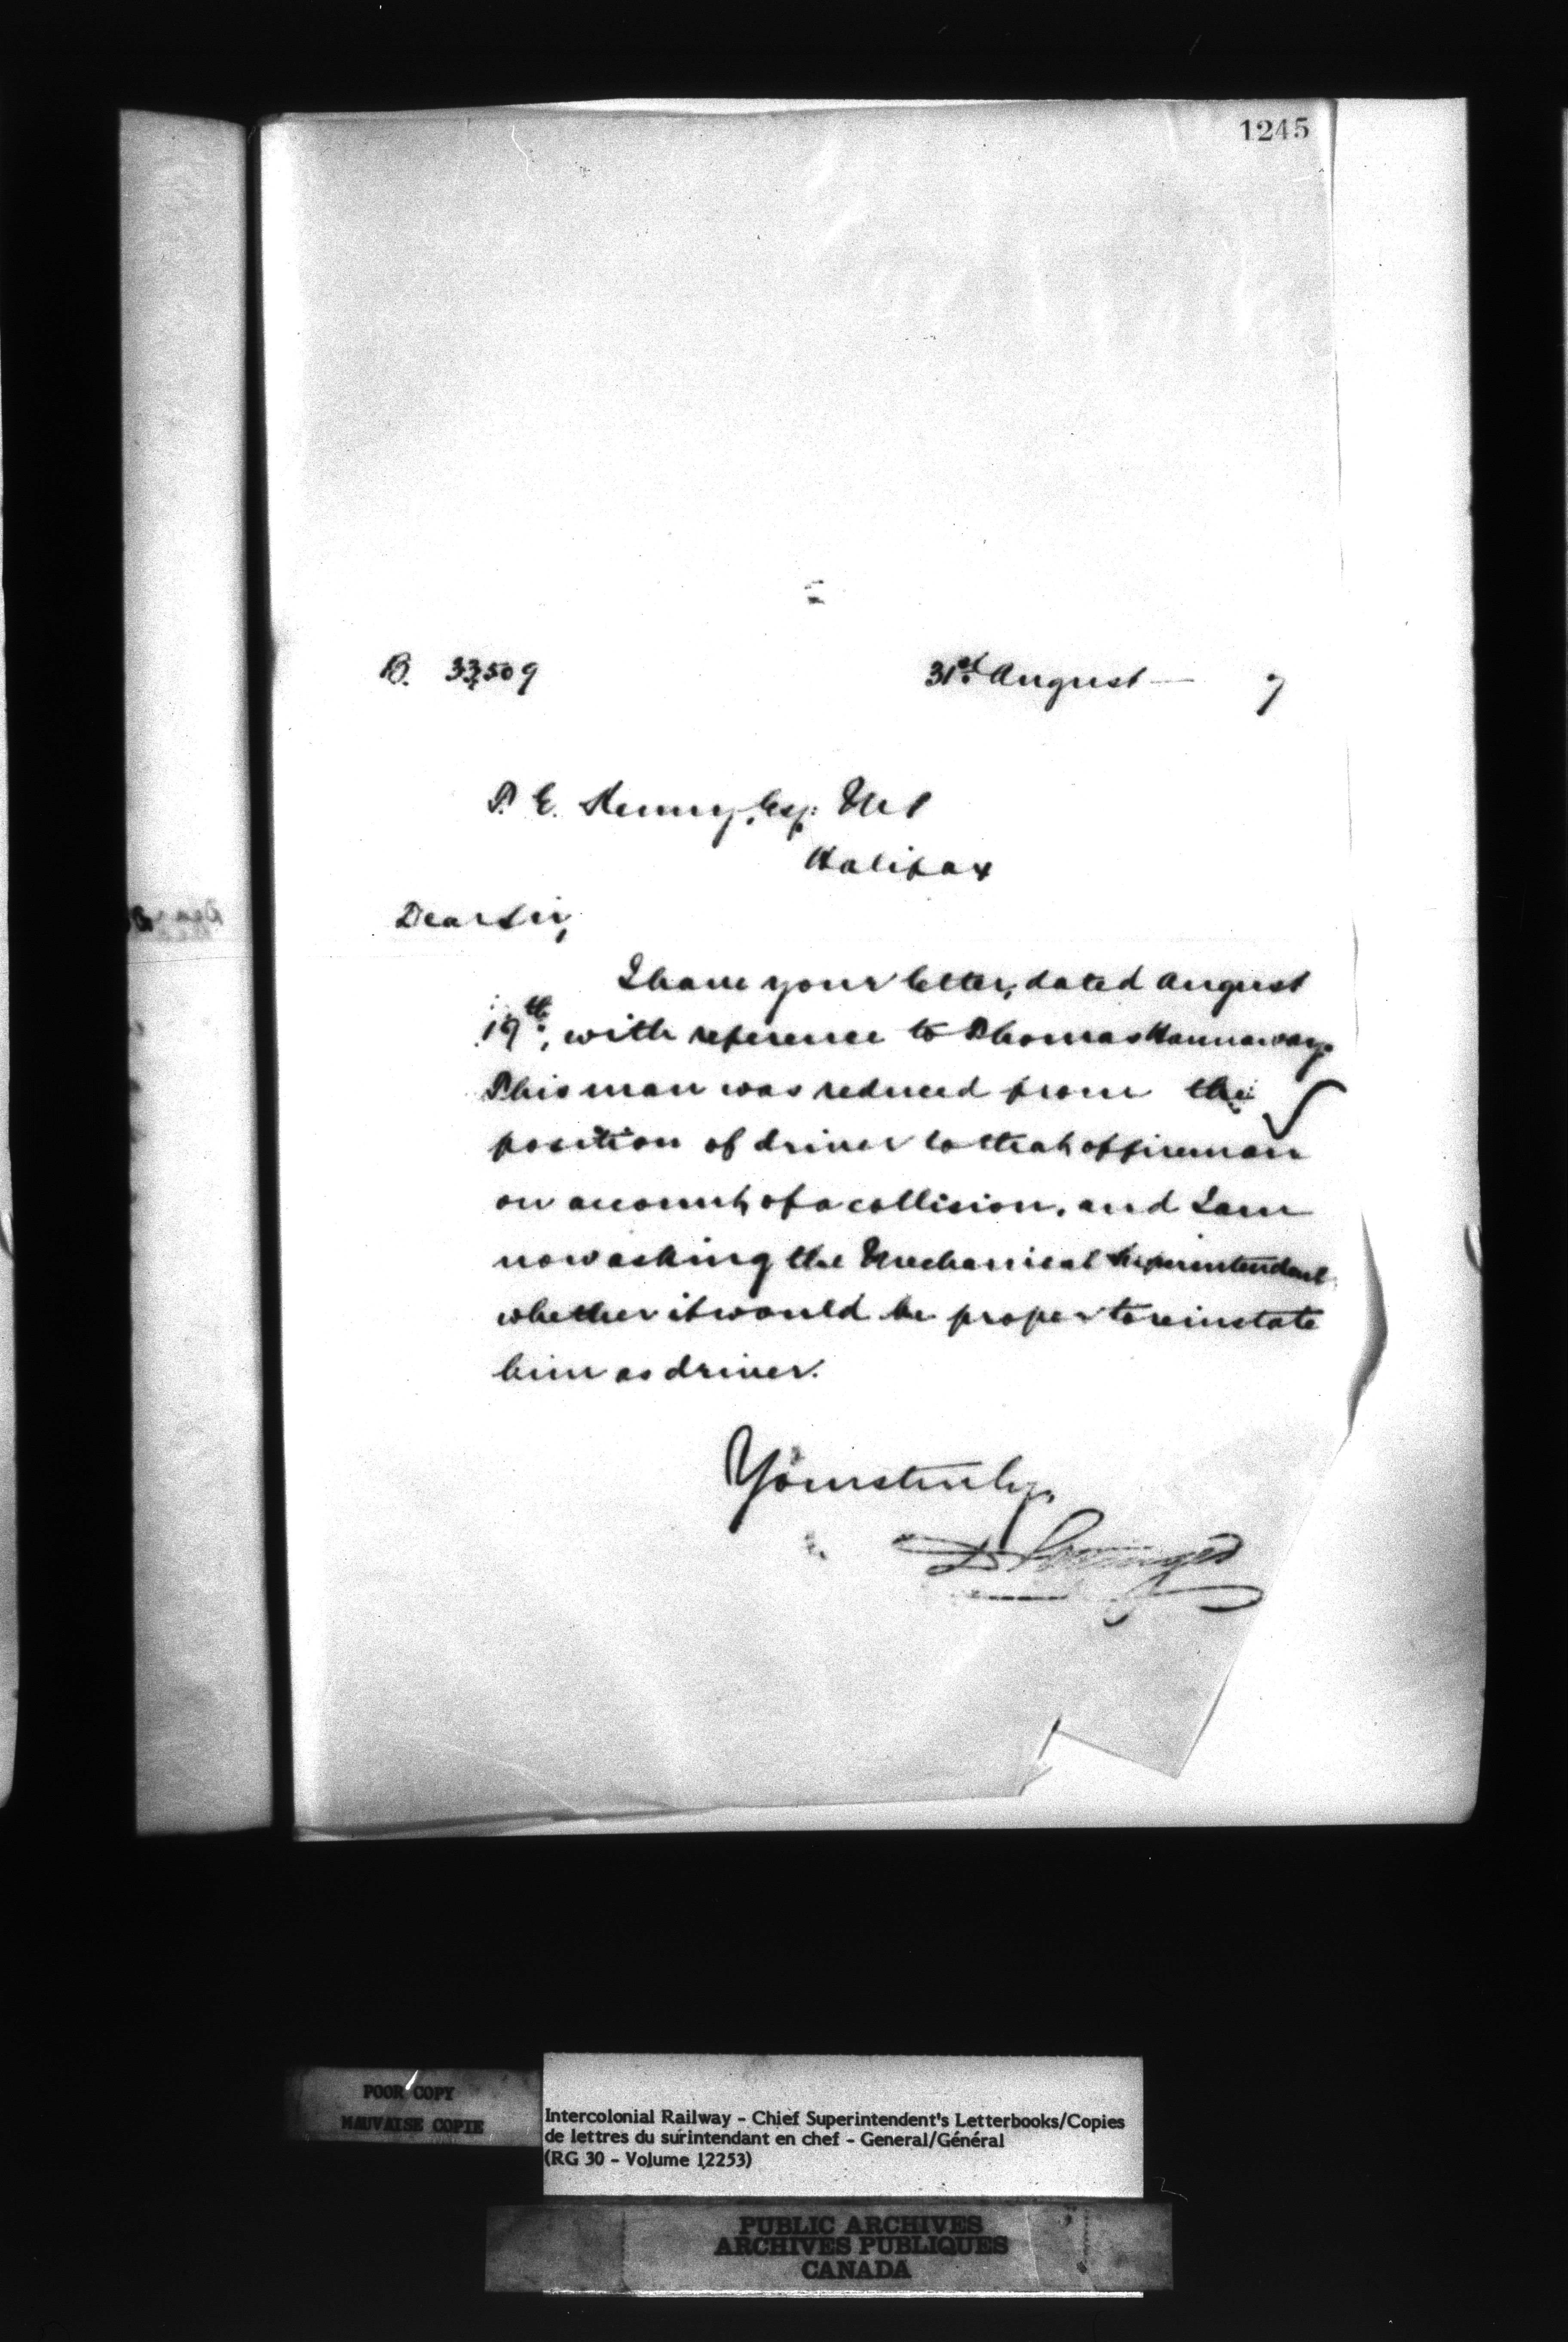 1245
B. 33,509
31st August — 7
T. E. Kenny, Esq: MP
Halifax
Dear Sir,
I have your letter, dated August
19th, with reference to Thomas Hannaway.
This man was reduced from the
position of driver to that of fireman
on account, of a collision, and I am
now asking the Mechanical Superintendent
whether it would be proper to reinstate
him as driver.
Yours truly,
D Pottinger
POOR COPY
MAUVAISE COPIE
Intercolonial Railway - Chief Superintendent's Letterbooks/Copies
de lettres du surintendant en chef - General/Général
(RG 30 - Volume 12253)
PUBLIC ARCHIVES
ARCHIVES PUBLIQUES
CANADA